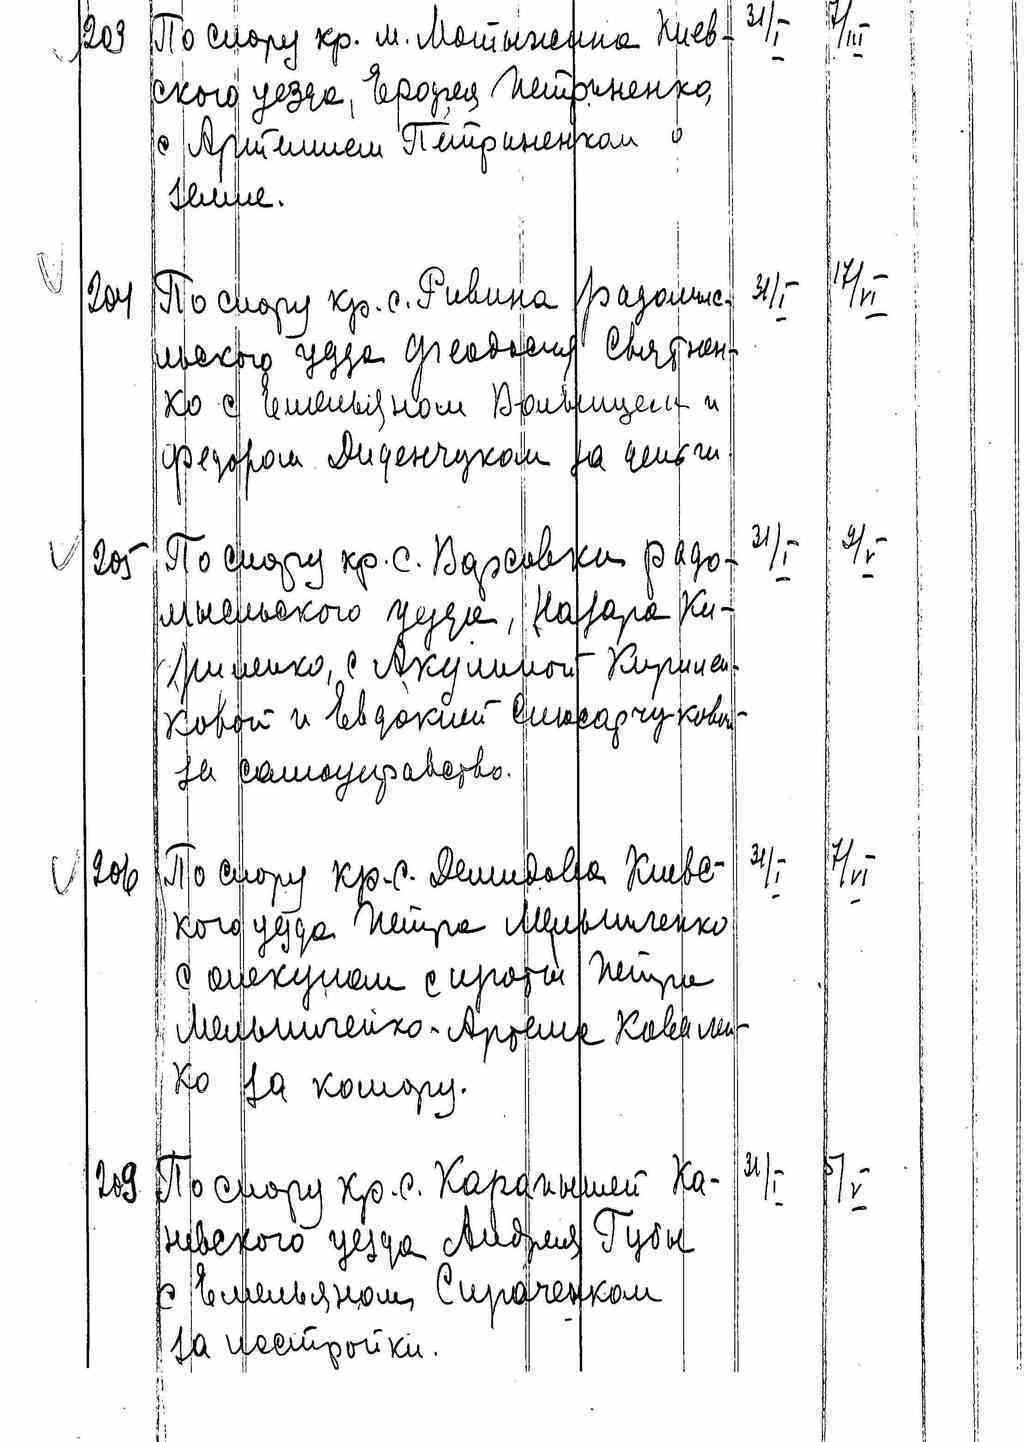 203 По спору кр. м. Мотыжина Киев- 31/I 7/III
ского уезда, Ерофея Петриненко,
с Артемием Петриненком о
земле.
204 По спору кр. с. Ривина радомыс- 31/I 17/VI
льского уезда Феодосия Святнен-
ко с Емельяном Вольницем и
Федором Диденчуком за деньги
205 По спору кр. с. Варовки радо- 31/I 9/V
мысльского уезда, Назара Ки-
риленко, с Акулиной Кирилен-
ковой и Евдокией Слюсарчуковой
за самоуправство.
206 По спору кр. с. Демидова Киевс- 31/I 7/VI
кого уезда Петра Мельниченко
с опекуном сироты Петра
Мельниченко - Артема Ковален-
ко за комору.
209 По спору кр. с. Карапышей Ка- 31/I 5/V
невского уезда Андрея Губы
с Емельяном Сираченком
за постройки.